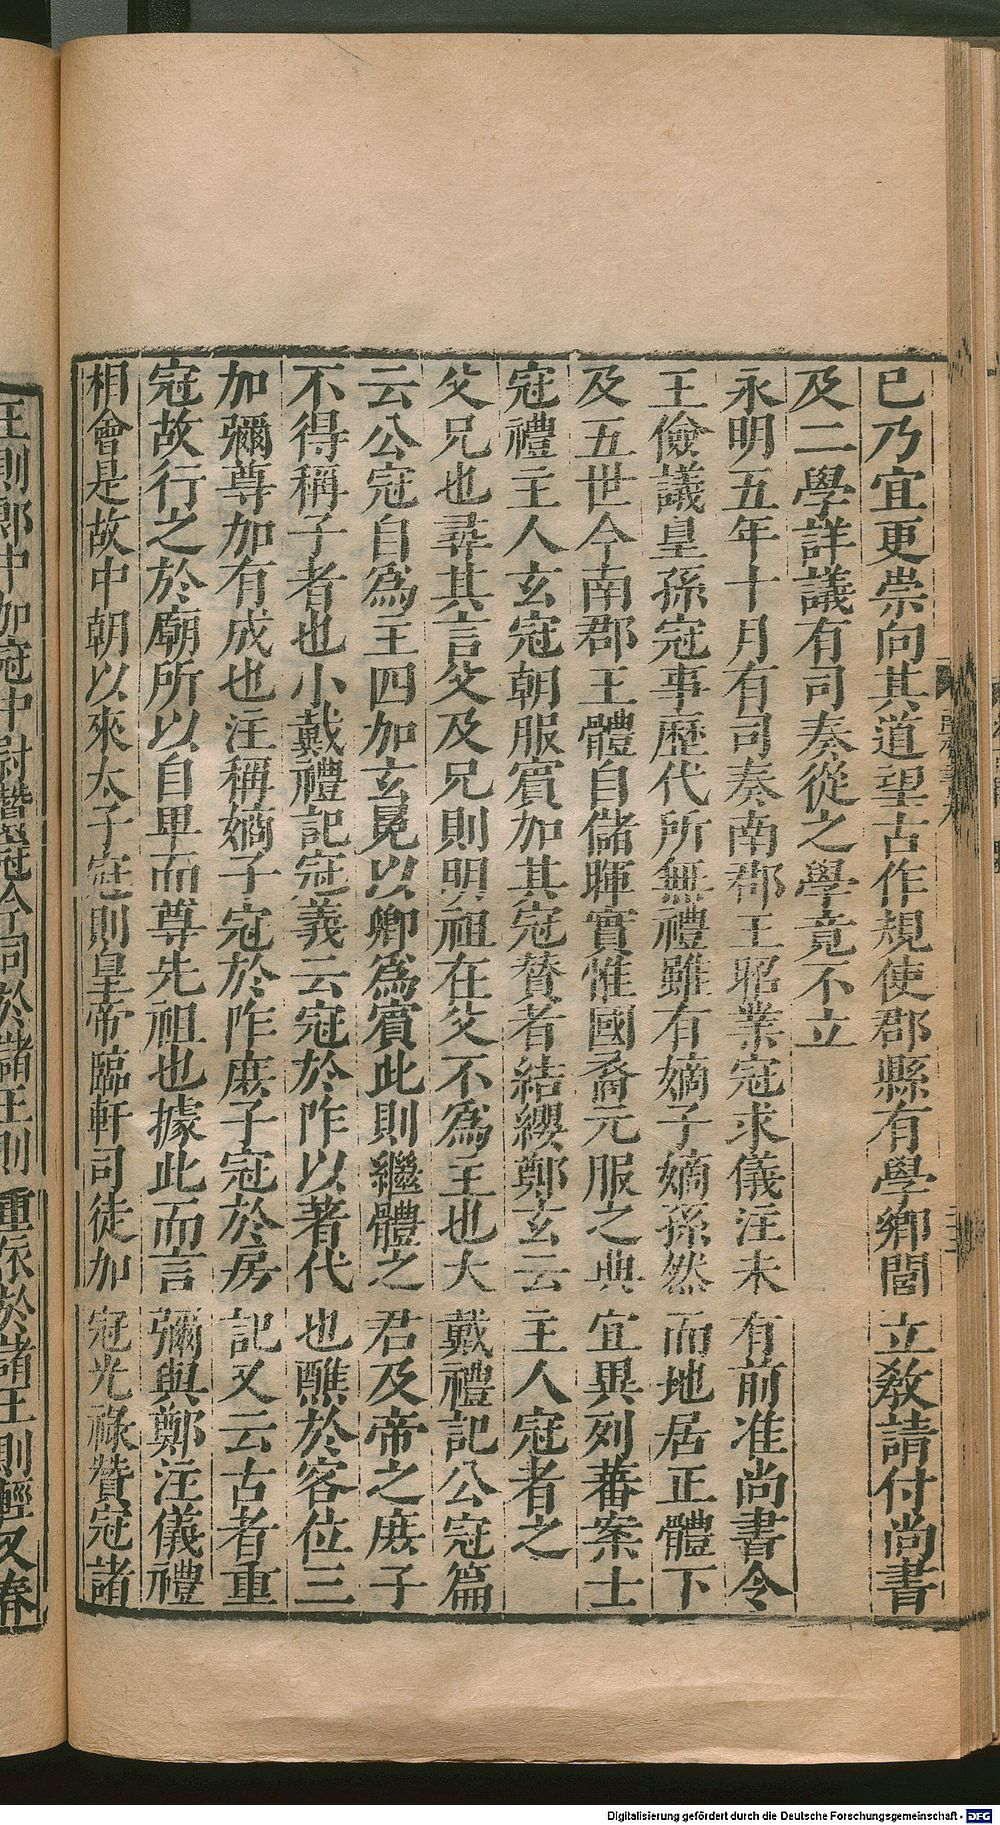 已乃宜更崇向其道望古作規使郡縣有學鄉閭立教請付尚書
及二學詳議有司奏從之學竟不立
永明五年十月有司奏南郡王昭業冠求儀注未有前准尚書令
王儉議皇孫冠事歷代所無禮雖有嫡子嫡孫然而地居正體下
及五世今南郡王體自儲暉實惟國裔元服之典宜異列蕃案士
冠禮主人玄冠朝服賓加其冠贊者結纓鄭玄云主人冠者之
父兄也尋其言父及兄則明祖在父不爲主也大戴禮記公冠篇
云公冠自爲主四加玄冕以卿爲賓此則繼體之君及帝之庶子
不得稱子者也小戴禮記冠義云冠於阼以著代也醮於客位三
加彌尊加有成也注稱嫡子冠於阼庶子冠於房記又云古者重
冠故行之於廟所以自卑而尊先祖也據此而言彌與鄭注儀禮
相會是故中朝以來太子冠則皇帝臨軒司徒加冠光祿贊冠諸
王則郎中加冠中尉贊冠今同於諸王則重依於諸王則輕又春
Digitalisierung gefördert durch die Deutsche Forschungsgemeinschaft - DFG